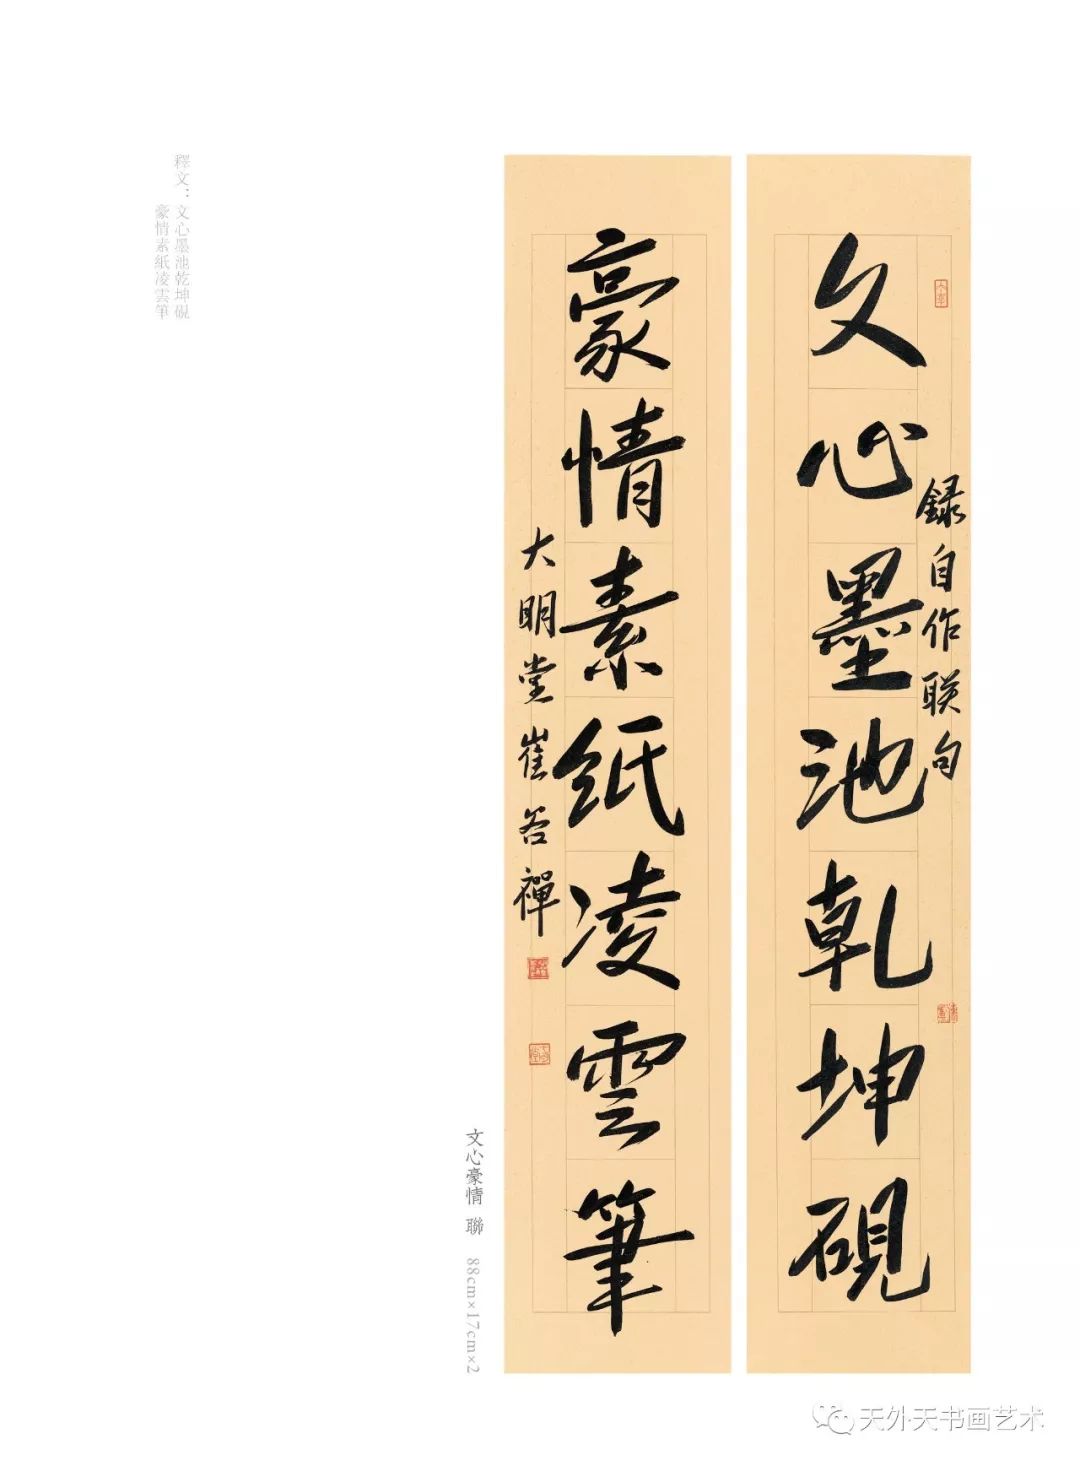 文心墨池乾坤硯
録自作联句
豪情素紙凌雲筆
大明堂崔谷禪
文心豪情 聯 88cm×17cm×2
釋文：文心墨池乾坤硯
豪情素紙凌雲筆
天外天书画艺术